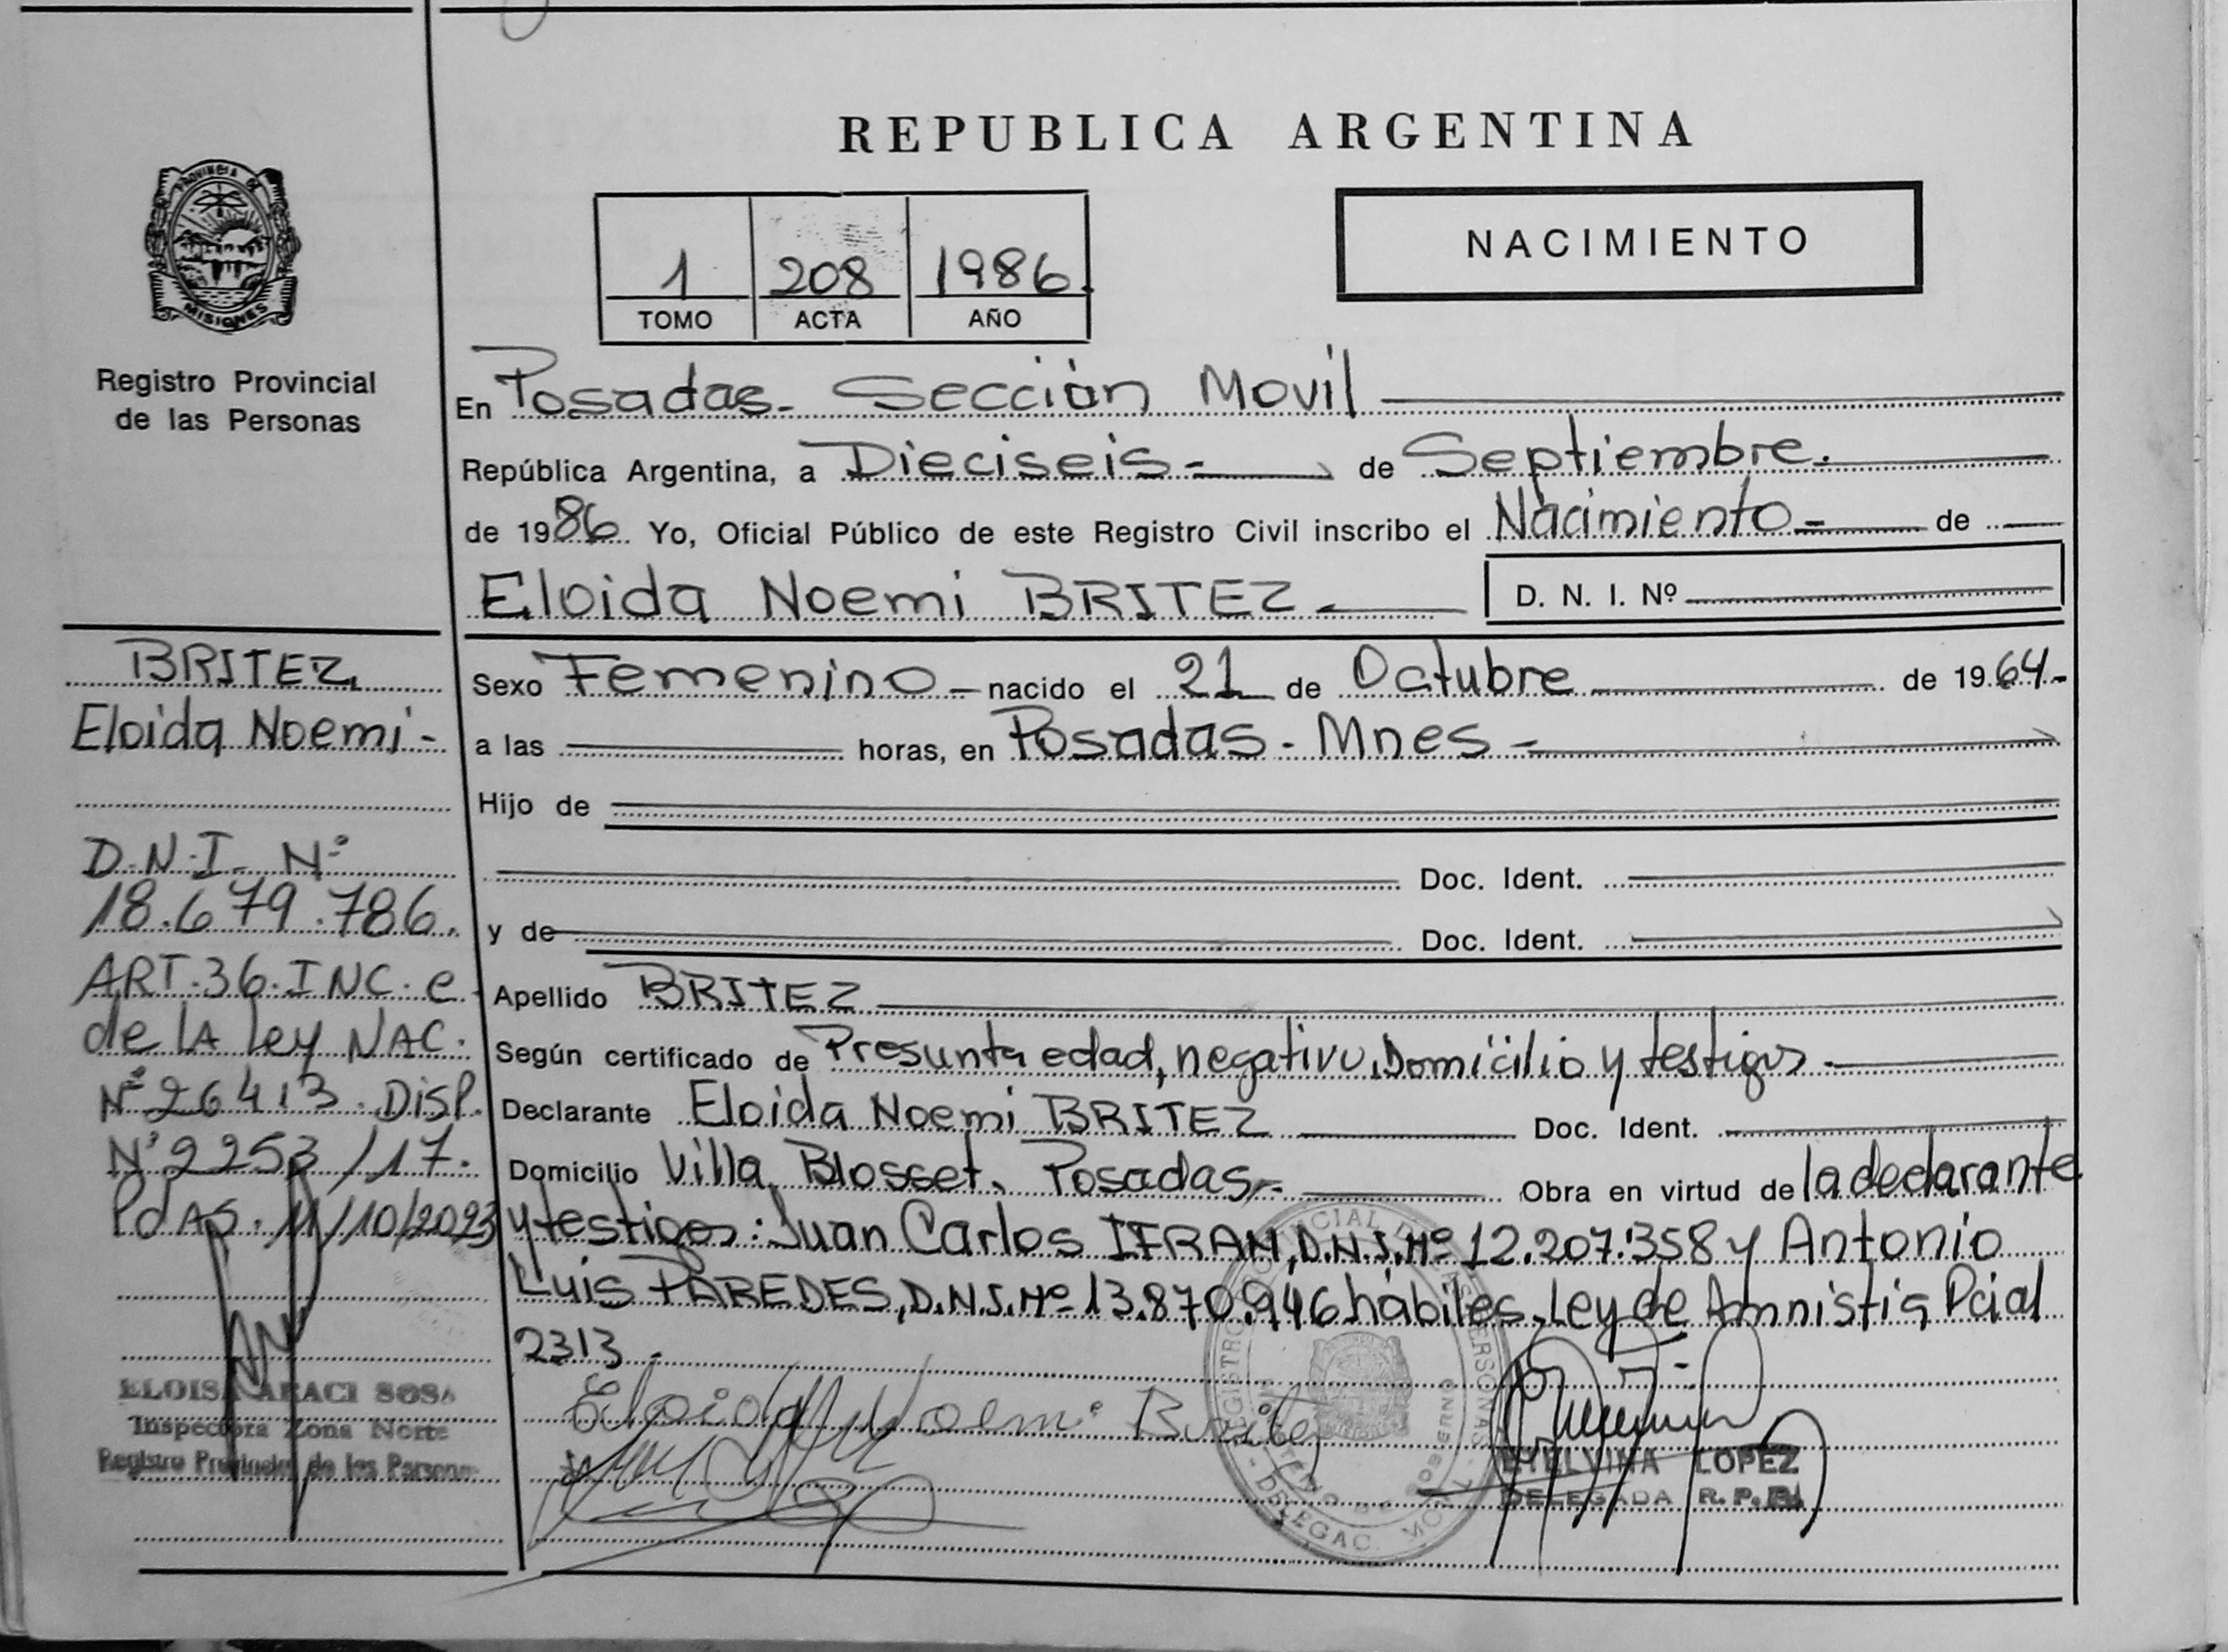 REPUBLICA ARGENTINA
PROVINCIA DE
MISIONES
Registro Provincial
de las Personas
1 208 1986.
TOMO ACTA AÑO
NACIMIENTO
En Posadas. Sección Movil
República Argentina, a Dieciseis de Septiembre.
de 1986. Yo, Oficial Público de este Registro Civil inscribo el Nacimiento de
Eloida Noemi BRITEZ
D. N. I. Nº
Sexo Femenino nacido el 21 de Octubre de 1964
a las horas, en Posadas - Mnes
Hijo de
Doc. Ident.
y de Doc. Ident.
Apellido BRITEZ
Según certificado de Presunta edad, negativo, Domicilio y testigos
Declarante Eloida Noemi BRITEZ Doc. Ident.
Domicilio Villa Blosset. Posadas Obra en virtud de la declarante
y testigos: Juan Carlos IFRAN, D.N.I. Nº 12.207.358 y Antonio
Luis PAREDES, D.N.I. Nº 13.870.946 hábiles. Ley de Amnistia Pcial
2313.
Eloida Noemi Britez
ETELVINA LOPEZ
DELEGADA R. P. P.
BRITEZ
Eloida Noemi
D.N.I. Nº
18.679.786.
ART. 36. INC. e
de LA Ley NAC.
Nº 26413. Disp.
Nº 2253/17.
PdAS. 11/10/2023
ELOISA ARACI SOSA
Inspectora Zona Norte
Registro Provincial de las Personas